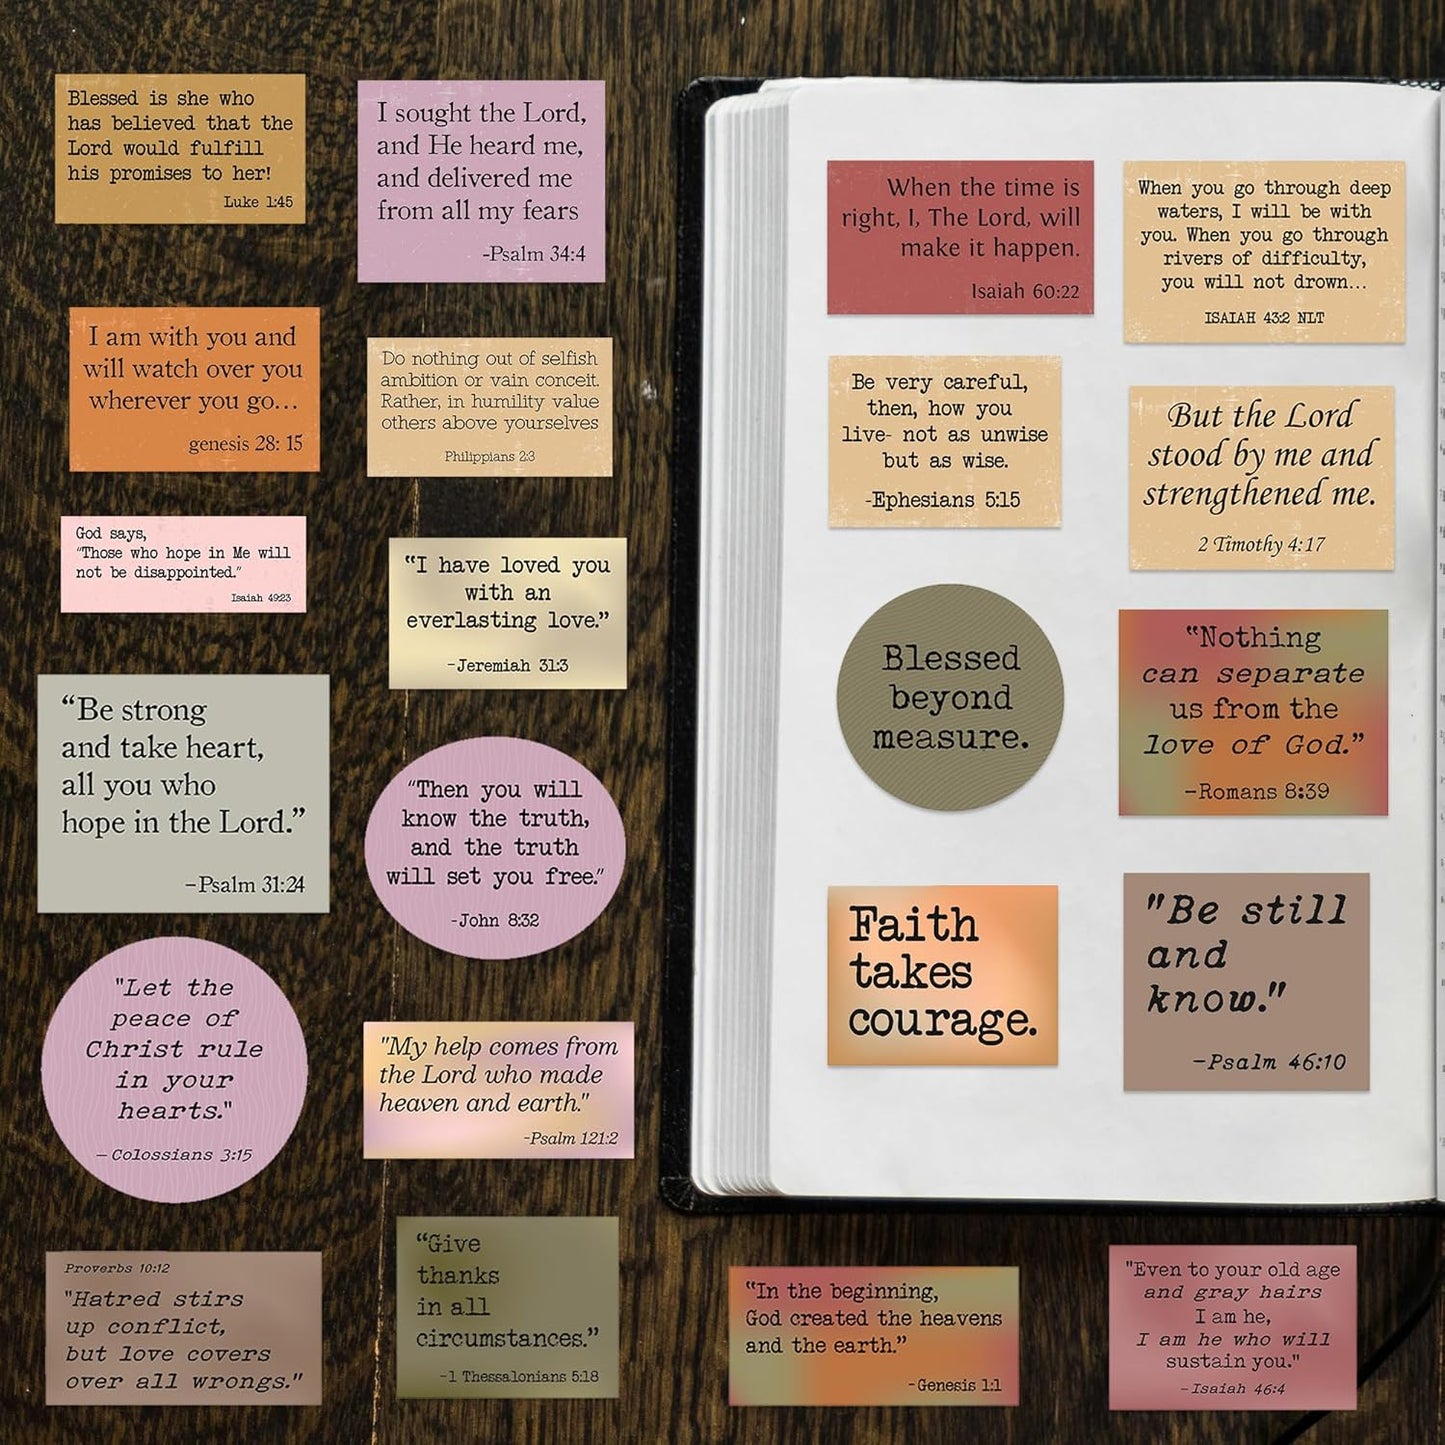 Blessed is she who
has believed that the
Lord would fulfill
his promises to her!
Luke 1:45
I sought the Lord,
and He heard me,
and delivered me
from all my fears
-Psalm 34:4
I am with you and
will watch over you
wherever you go...
genesis 28: 15
Do nothing out of selfish
ambition or vain conceit.
Rather, in humility value
others above yourselves
Philippians 2:3
God says,
"Those who hope in Me will
not be disappointed."
Isaiah 49:23
“I have loved you
with an
everlasting love.”
-Jeremiah 31:3
“Be strong
and take heart,
all you who
hope in the Lord.”
–Psalm 31:24
"Then you will
know the truth,
and the truth
will set you free."
-John 8:32
"Let the
peace of
Christ rule
in your
hearts."
– Colossians 3:15
"My help comes from
the Lord who made
heaven and earth."
-Psalm 121:2
Proverbs 10:12
"Hatred stirs
up conflict,
but love covers
over all wrongs."
“Give
thanks
in all
circumstances.”
-1 Thessalonians 5:18
When the time is
right, I, The Lord, will
make it happen.
Isaiah 60:22
When you go through deep
waters, I will be with
you. When you go through
rivers of difficulty,
you will not drown...
ISAIAH 43:2 NLT
Be very careful,
then, how you
live- not as unwise
but as wise.
-Ephesians 5:15
But the Lord
stood by me and
strengthened me.
2 Timothy 4:17
Blessed
beyond
measure.
“Nothing
can separate
us from the
love of God.”
-Romans 8:39
Faith
takes
courage.
"Be still
and
know."
–Psalm 46:10
“In the beginning,
God created the heavens
and the earth.”
-Genesis 1:1
"Even to your old age
and gray hairs
I am he,
I am he who will
sustain you."
-Isaiah 46:4